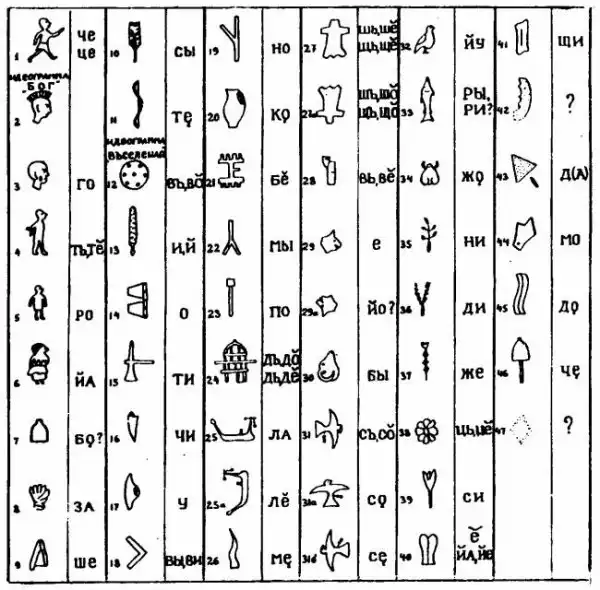 1 ЧЕ 10 СЫ 19 НО 27 ШЬ,ШӖ 32 ЙУ 41 ЩИ
ЦЕ ЩЬ,ЩӖ
ИДЕОГРАММА
"БОГ"
2 11 ТЕ̨ 20 КО̨ 27а ШЪ,ШО̆ 33 РЫ, 42 ?
ЩЪ,ЩО̆ РИ?
ИДЕОГРАММА
ВЪСЕЛЕНАЯ
3 ГО 12 ВЪ,ВО̆ 21 БӖ 28 ВЬ,ВӖ 34 ЖО̨ 43
4 ТЬ,ТӖ 13 И,Й 22 МЫ 29 Е 35 НИ 44 МО
5 РО 14 О 23 ПО 29а ЙО? 36 ДИ 45 ДО̨
6 ЙА 15 ТИ 24 ДЪ,ДО̆ 30 БЫ 37 ЖЕ 46 ЧЕ̨
ДЬ,ДӖ
7 БО̨? 16 ЧИ 25 ЛА 31 СЪ,СО̆ 38 ЦЬ,ЦӖ 47 ?
8 ЗА 17 У 25а ЛӖ 31а СО̨ 39 СИ
9 ШЕ 18 ВЫ,ВИ 26 МЕ̨ 31б СЕ̨ 40 Ӗ
ЙА,ЙЕ